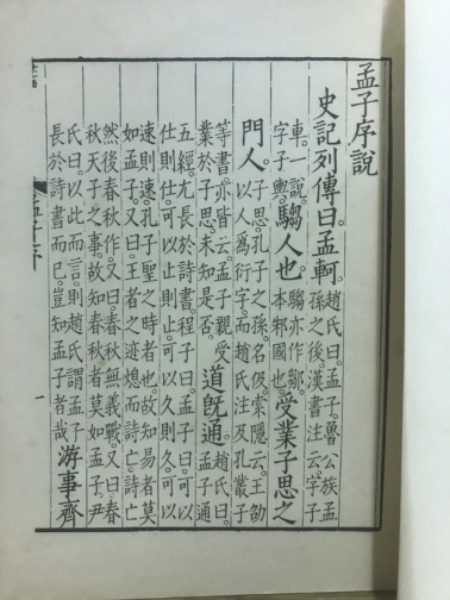 孟子序說
史記列傳曰。孟軻。趙氏曰。孟子。魯公族孟孫之後。漢書注云。字子
車。一說。字子輿。騶人也。騶亦作鄒。本邾國也。受業子思之
門人。子思。孔子之孫。名伋。索隱云。王劭以人爲衍字。而趙氏注及孔叢子
等書。亦皆云。孟子親受業於子思。未知是否。道旣通。趙氏曰。孟子通
五經。尤長於詩書。程子曰。孟子曰。可以仕則仕。可以止則止。可以久則久。可以
速則速。孔子聖之時者也。故知易者莫如孟子。又曰。王者之迹熄而詩亡。詩亡
然後春秋作。又曰。春秋無義戰。又曰。春秋天子之事。故知春秋者莫如孟子。尹
氏曰。以此而言。則趙氏謂孟子長於詩書而已。豈知孟子者哉游事齊
孟子序
一